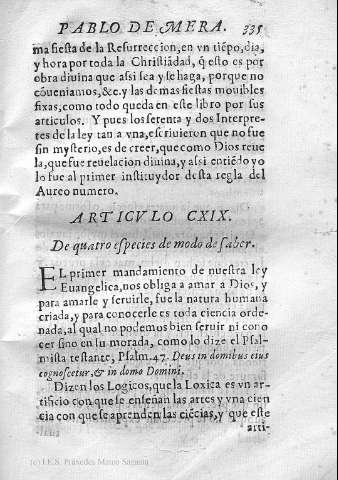 PABLO DE MERA. 335
ma fiesta de la Resurreccion, en vn tiẽpo, dia,
y hora por toda la Christiãdad, q̃ esto es por
obra diuina que assi sea y se haga, porque no
cõueniamos, &c. y las demas fiestas mouibles
fixas, como todo queda en este libro por sus
articulos. Y pues los setenta y dos Interpre
tes de la ley tan a vna, escriuieron que no fue
sin mysterio, es de creer, que como Dios reue
la, que fue reuelacion diuina, y assi entiẽdo yo
lo fue al primer instituydor desta regla del
Aureo numero.
ARTICVLO CXIX.
De quatro especies de modo de saber.
EL primer mandamiento de nuestra ley
Euangelica, nos obliga a amar a Dios, y
para amarle y seruirle, fue la natura humana
criada, y para conocerle es toda ciencia orde-
nada, al qual no podemos bien seruir ni cono
cer sino en su morada, como lo dize el Psal-
mista testante, Psalm. 47. Deus in domibus eius
cognoscetur, & in domo Domini.
Dizen los Logicos, que la Loxica es vn ar-
tificio con que se enseñan las artes y vna cien
cia con que se aprenden las ciẽcias, y que este
arti-
(c) I.E.S. Práxedes Mateo Sagasta